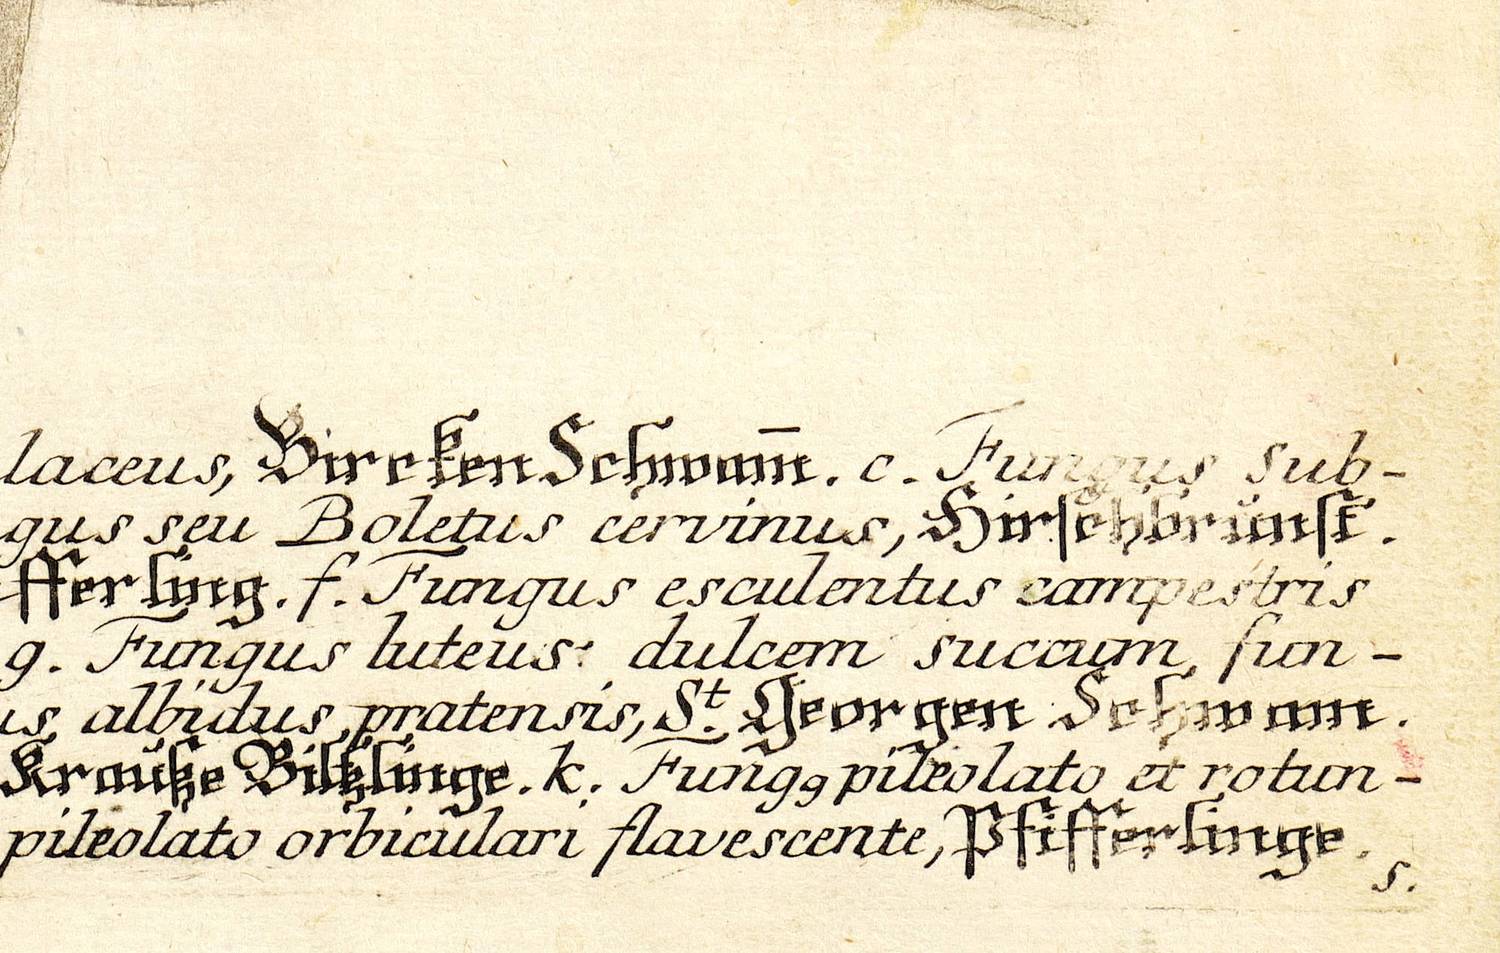 laceus, Bircken Schwam̄. c. Fungus sub-
gus seu Boletus cervinus, Hirschbrunst.
fferling. f. Fungus esculentus campestris
g. Fungus luteus dulcem succum fun-
us albidus pratensis, St. Georgen Schwam.
Krauße Biltzlinge. k. Fungꝰ pileolato et rotun-
pileolato orbiculari flavescente, Pfifferlinge.
s.